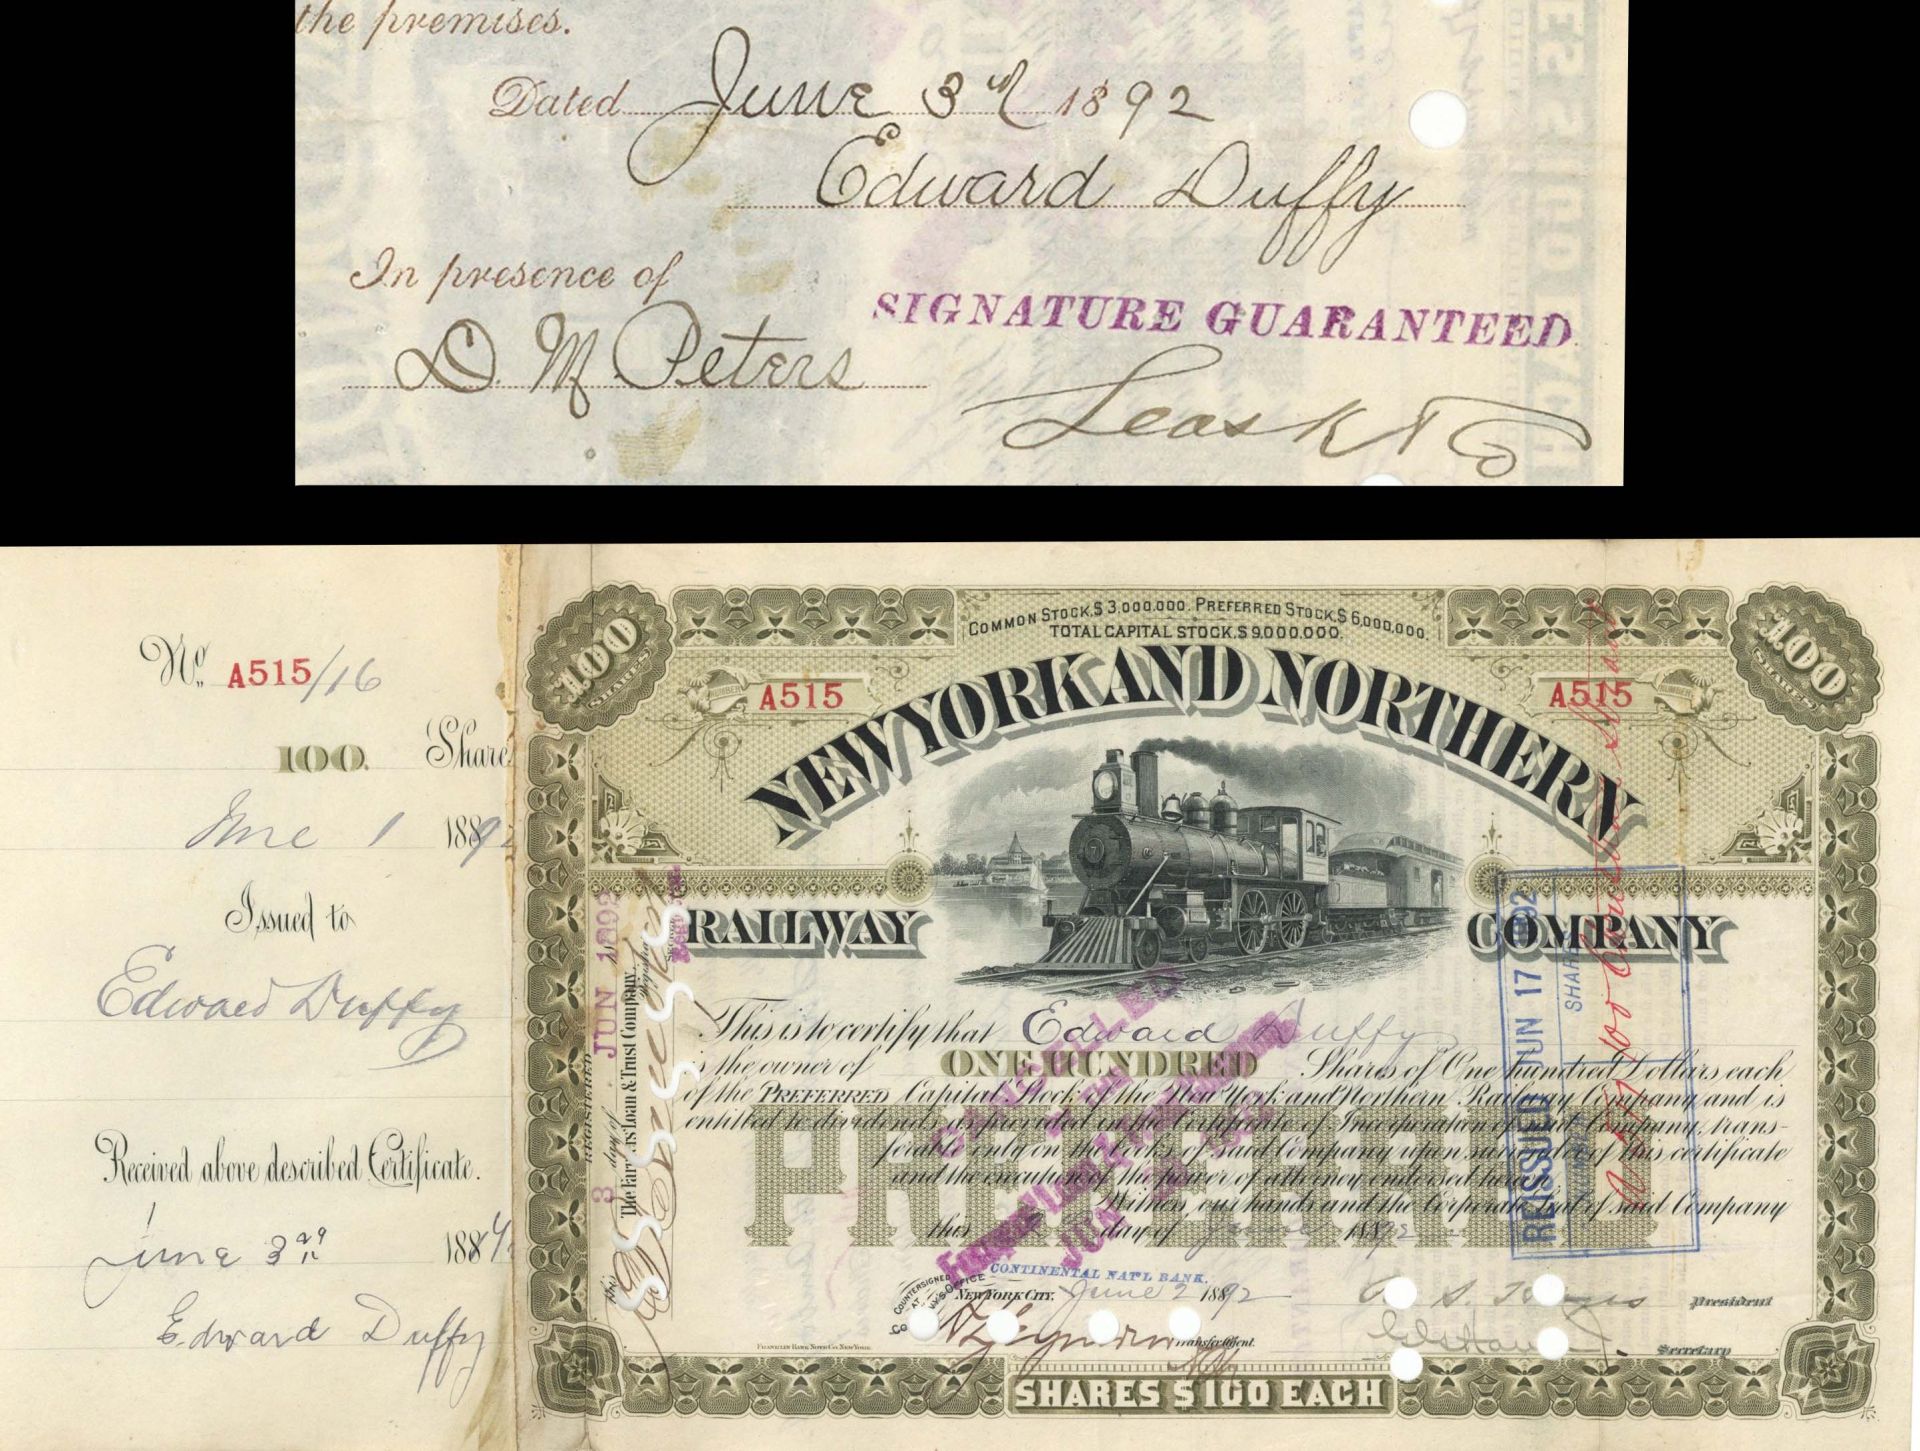 the premises.
Dated June 3rd 1892
Edward Duffy
In presence of
SIGNATURE GUARANTEED
D. M. Peters
Leask & Co
No. A515/16
100. Share
June 1 1892
Issued to
Edward Duffy
Received above described Certificate.
June 3rd 188
Edward Duffy
100 SHARES
COMMON STOCK, $3,000,000. PREFERRED STOCK, $6,000,000.
TOTAL CAPITAL STOCK, $9,000,000.
100 SHARES
NUMBER A515
A515 NUMBER
NEW YORK AND NORTHERN
RAILWAY COMPANY
This is to certify that Edward Duffy
is the owner of ONE HUNDRED Shares of One hundred Dollars each
of the PREFERRED Capital Stock of the New York and Northern Railway Company and is
entitled to dividends as provided in the Certificate of Incorporation of said Company, trans-
ferable only on the books of said Company upon surrender of this certificate
and the execution of the power of attorney endorsed hereon.
Witness, our hands and the Corporate Seal of said Company
this day of June 1892
PREFERRED
REGISTERED
this 3 JUN 1892 day of
The Farmers Loan & Trust Company.
CANCELLED
Farmers Loan & Trust Company
REISSUED JUN 17 1892
SHARES
NUMBER
COUNTERSIGNED AT CO'NY'S OFFICE
CONTINENTAL NAT'L BANK.
NEW YORK CITY, June 2 1892
Transfer Agent.
President
Secretary
FRANKLIN BANK NOTE CO. NEW YORK.
SHARES $100 EACH